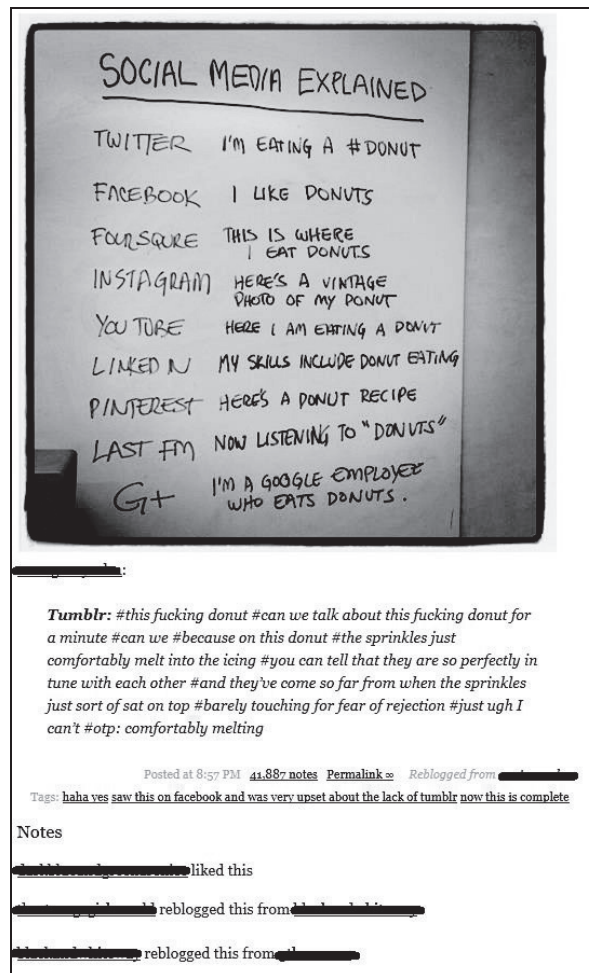 SOCIAL MEDIA EXPLAINED
TWITTER I'M EATING A #DONUT
FACEBOOK I LIKE DONUTS
FOURSQURE THIS IS WHERE
I EAT DONUTS
INSTAGRAM HERE'S A VINTAGE
PHOTO OF MY DONUT
YOU TUBE HERE I AM EATING A DONUT
LINKED IN MY SKILLS INCLUDE DONUT EATING
PINTEREST HERE'S A DONUT RECIPE
LAST FM NOW LISTENING TO "DONUTS"
G+ I'M A GOOGLE EMPLOYEE
WHO EATS DONUTS.
:
Tumblr: #this fucking donut #can we talk about this fucking donut for
a minute #can we #because on this donut #the sprinkles just
comfortably melt into the icing #you can tell that they are so perfectly in
tune with each other #and they've come so far from when the sprinkles
just sort of sat on top #barely touching for fear of rejection #just ugh I
can't #otp: comfortably melting
Posted at 8:57 PM 41,887 notes Permalink ∞ Reblogged from
Tags: haha yes saw this on facebook and was very upset about the lack of tumblr now this is complete
Notes
liked this
reblogged this from
reblogged this from